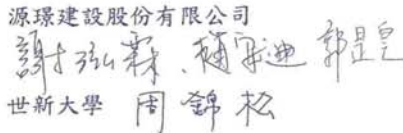 源璟建設股份有限公司
謝弘霖、楊宇迪 郭是皇
世新大學 周錦松